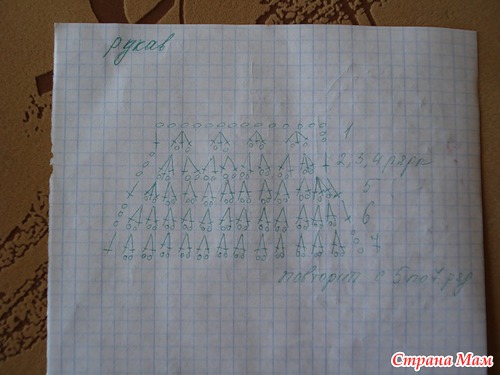 рукав
1
2,3,4 рядк
5
6
7
повторить с 5 по 7 ряд
Страна Мам